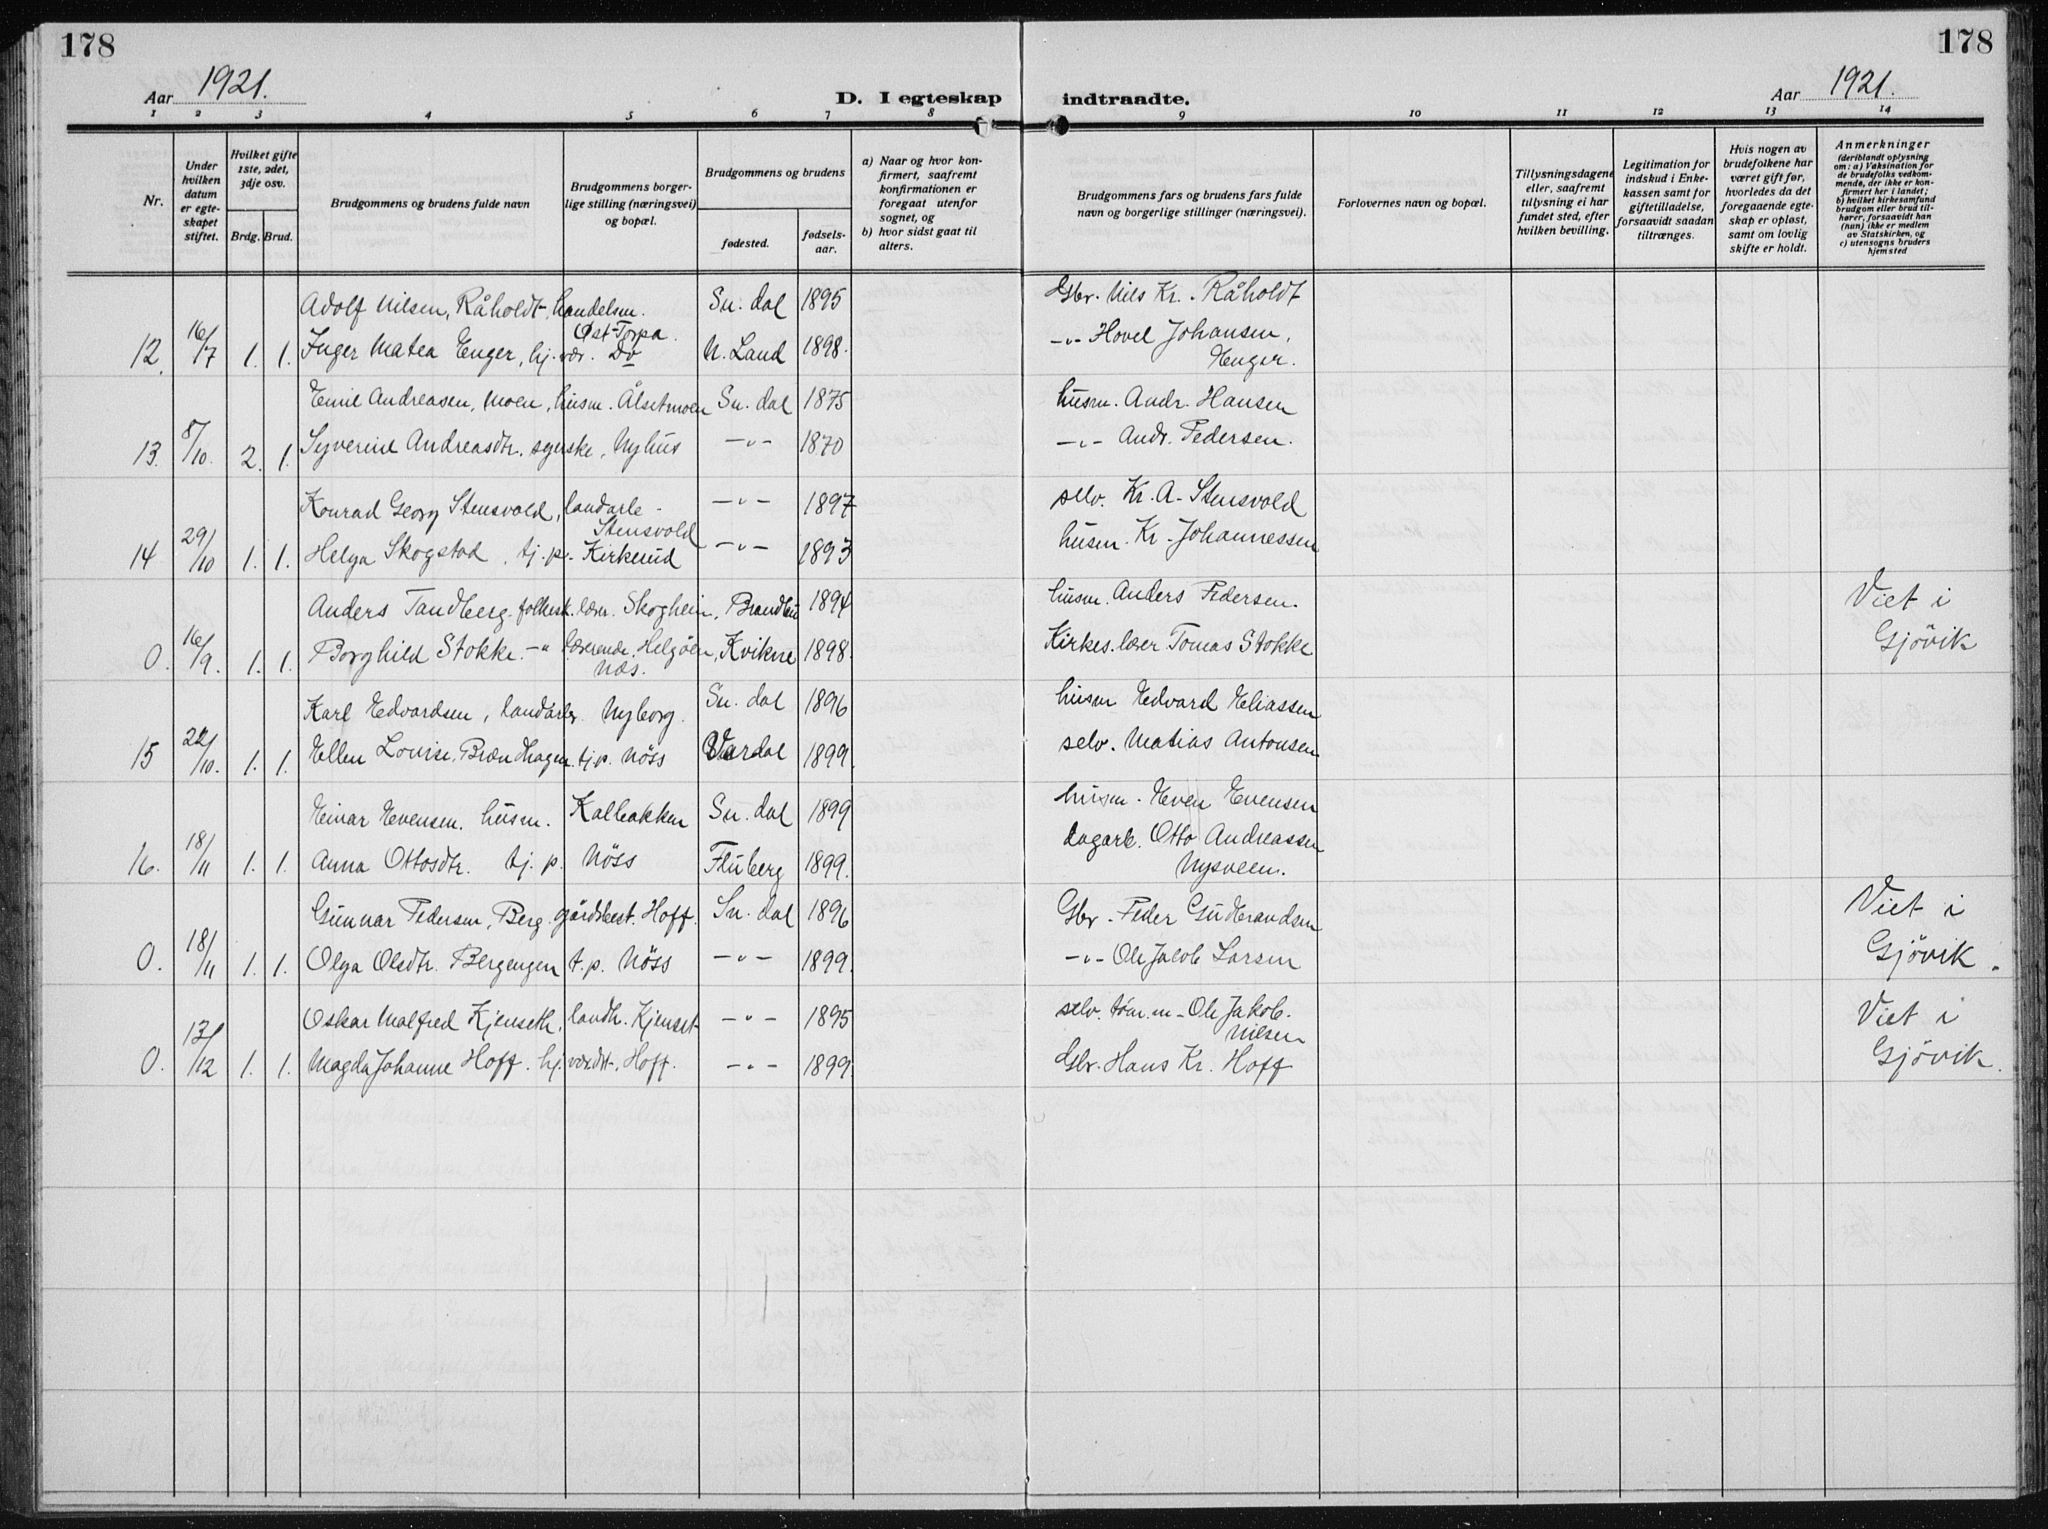 178
178
Aar 1921.
D. I egteskap
indtraadte.
Aar 1921.
1 2 3 4 5 6 7 8 9 10 11 12 13 14
Nr.
Under hvilken datum er egteskapet stiftet.
Hvilket gifte 1ste, 2det, 3dje osv.
Brdg. Brud.
Brudgommens og brudens fulde navn
Brudgommens borgerlige stilling (næringsvei) og bopæl.
Brudgommens og brudens
fødested.
fødselsaar.
a) Naar og hvor konfirmert, saafremt konfirmationen er foregaat utenfor sognet, og
b) hvor sidst gaat til alters.
Brudgommens fars og brudens fars fulde navn og borgerlige stillinger (næringsvei).
Forlovernes navn og bopæl.
Tillysningsdagene eller, saafremt tillysning ei har fundet sted, efter hvilken bevilling.
Legitimation for indskud i Enkekassen samt for giftetilladelse, forsaavidt saadan tiltrænges.
Hvis nogen av brudefolkene har været gift før, hvorledes da det foregaaende egteskap er opløst, samt om lovlig skifte er holdt.
Anmerkninger
(deriblandt oplysning om: a) Vaksination for de brudefolks vedkommende, der ikke er konfirmert her i landet; b) hvilket kirkesamfund brudgom eller brud tilhører, forsaavidt han (hun) ikke er medlem av Statskirken, og c) utensogns bruders hjemsted
Adolf Nilsen, Råholdt, handelsm. Sn. dal 1895 Gbr. Nils Kr. Råholdt
Øst-Torpa.
12. 16/7 1. 1. Inger Matea Enger, hj. vær. Do N. Land 1898. -"- Hovel Johansen,
Enger.
Emil Andreasen, Moen, husm. Ålsetmoen Sn. dal 1875 husm. Andr. Hansen
13. 8/10. 2. 1. Syverine Andreasdtr. syerske, Nyhus -"- 1870 -"- Andr. Pedersen.
Konrad Georg Stensvold, landarb. -"- 1897 selv. Kr. A. Stensvold
Stensvold
14 29/10 1. 1. Helga Skogstad, tj. p. Kirkerud -"- 1893 husm. Kr. Johannessen
Anders Tandberg. folkesk. lærer. Skoghein, Brandbu 1894 husm. Anders Pedersen. Viet i
0. 16/9. 1. 1. Borghild Stokke. -" lærerinde. Helgöen, Kvikne 1898. Kirkes. lærer Tomas Stokke Gjövik
Næs.
Karl Edvardsen, landarb. Nyborg. Sn. dal 1896 husm Edvard Eliassen
15 22/10. 1. 1. Ellen Lovise Brændhagen. tj. p. Nöss Vardal 1899. selv. Matias Antonsen
Einar Evensen. husm. Kalbakken Sn. dal 1899 husm. Even Evensen
16. 18/11 1. 1. Anna Ottosdtr. tj. p. Nöss Fluberg 1899. dagarb. Otto Andreassen
Nysveen.
Gunnar Pedersen, Berg. gårdsbest. Hoff. Sn. dal 1896 Gbr. Peder Gudbrandsen Viet i
0. 18/11 1. 1. Olga Olsdtr. Bergengen t. p. Nöss -"- 1899. -"- Ole Jacob Larsen Gjövik.
Oskar Malfred Kjenseth, landh. Kjenset -"- 1895 selv. tøm. m. Ole Jakob. Viet i
Nilsen
0. 13/12 1. 1. Magda Johanne Hoff. hj. værdt. Hoff. -"- 1899. Gbr. Hans Kr. Hoff Gjövik.